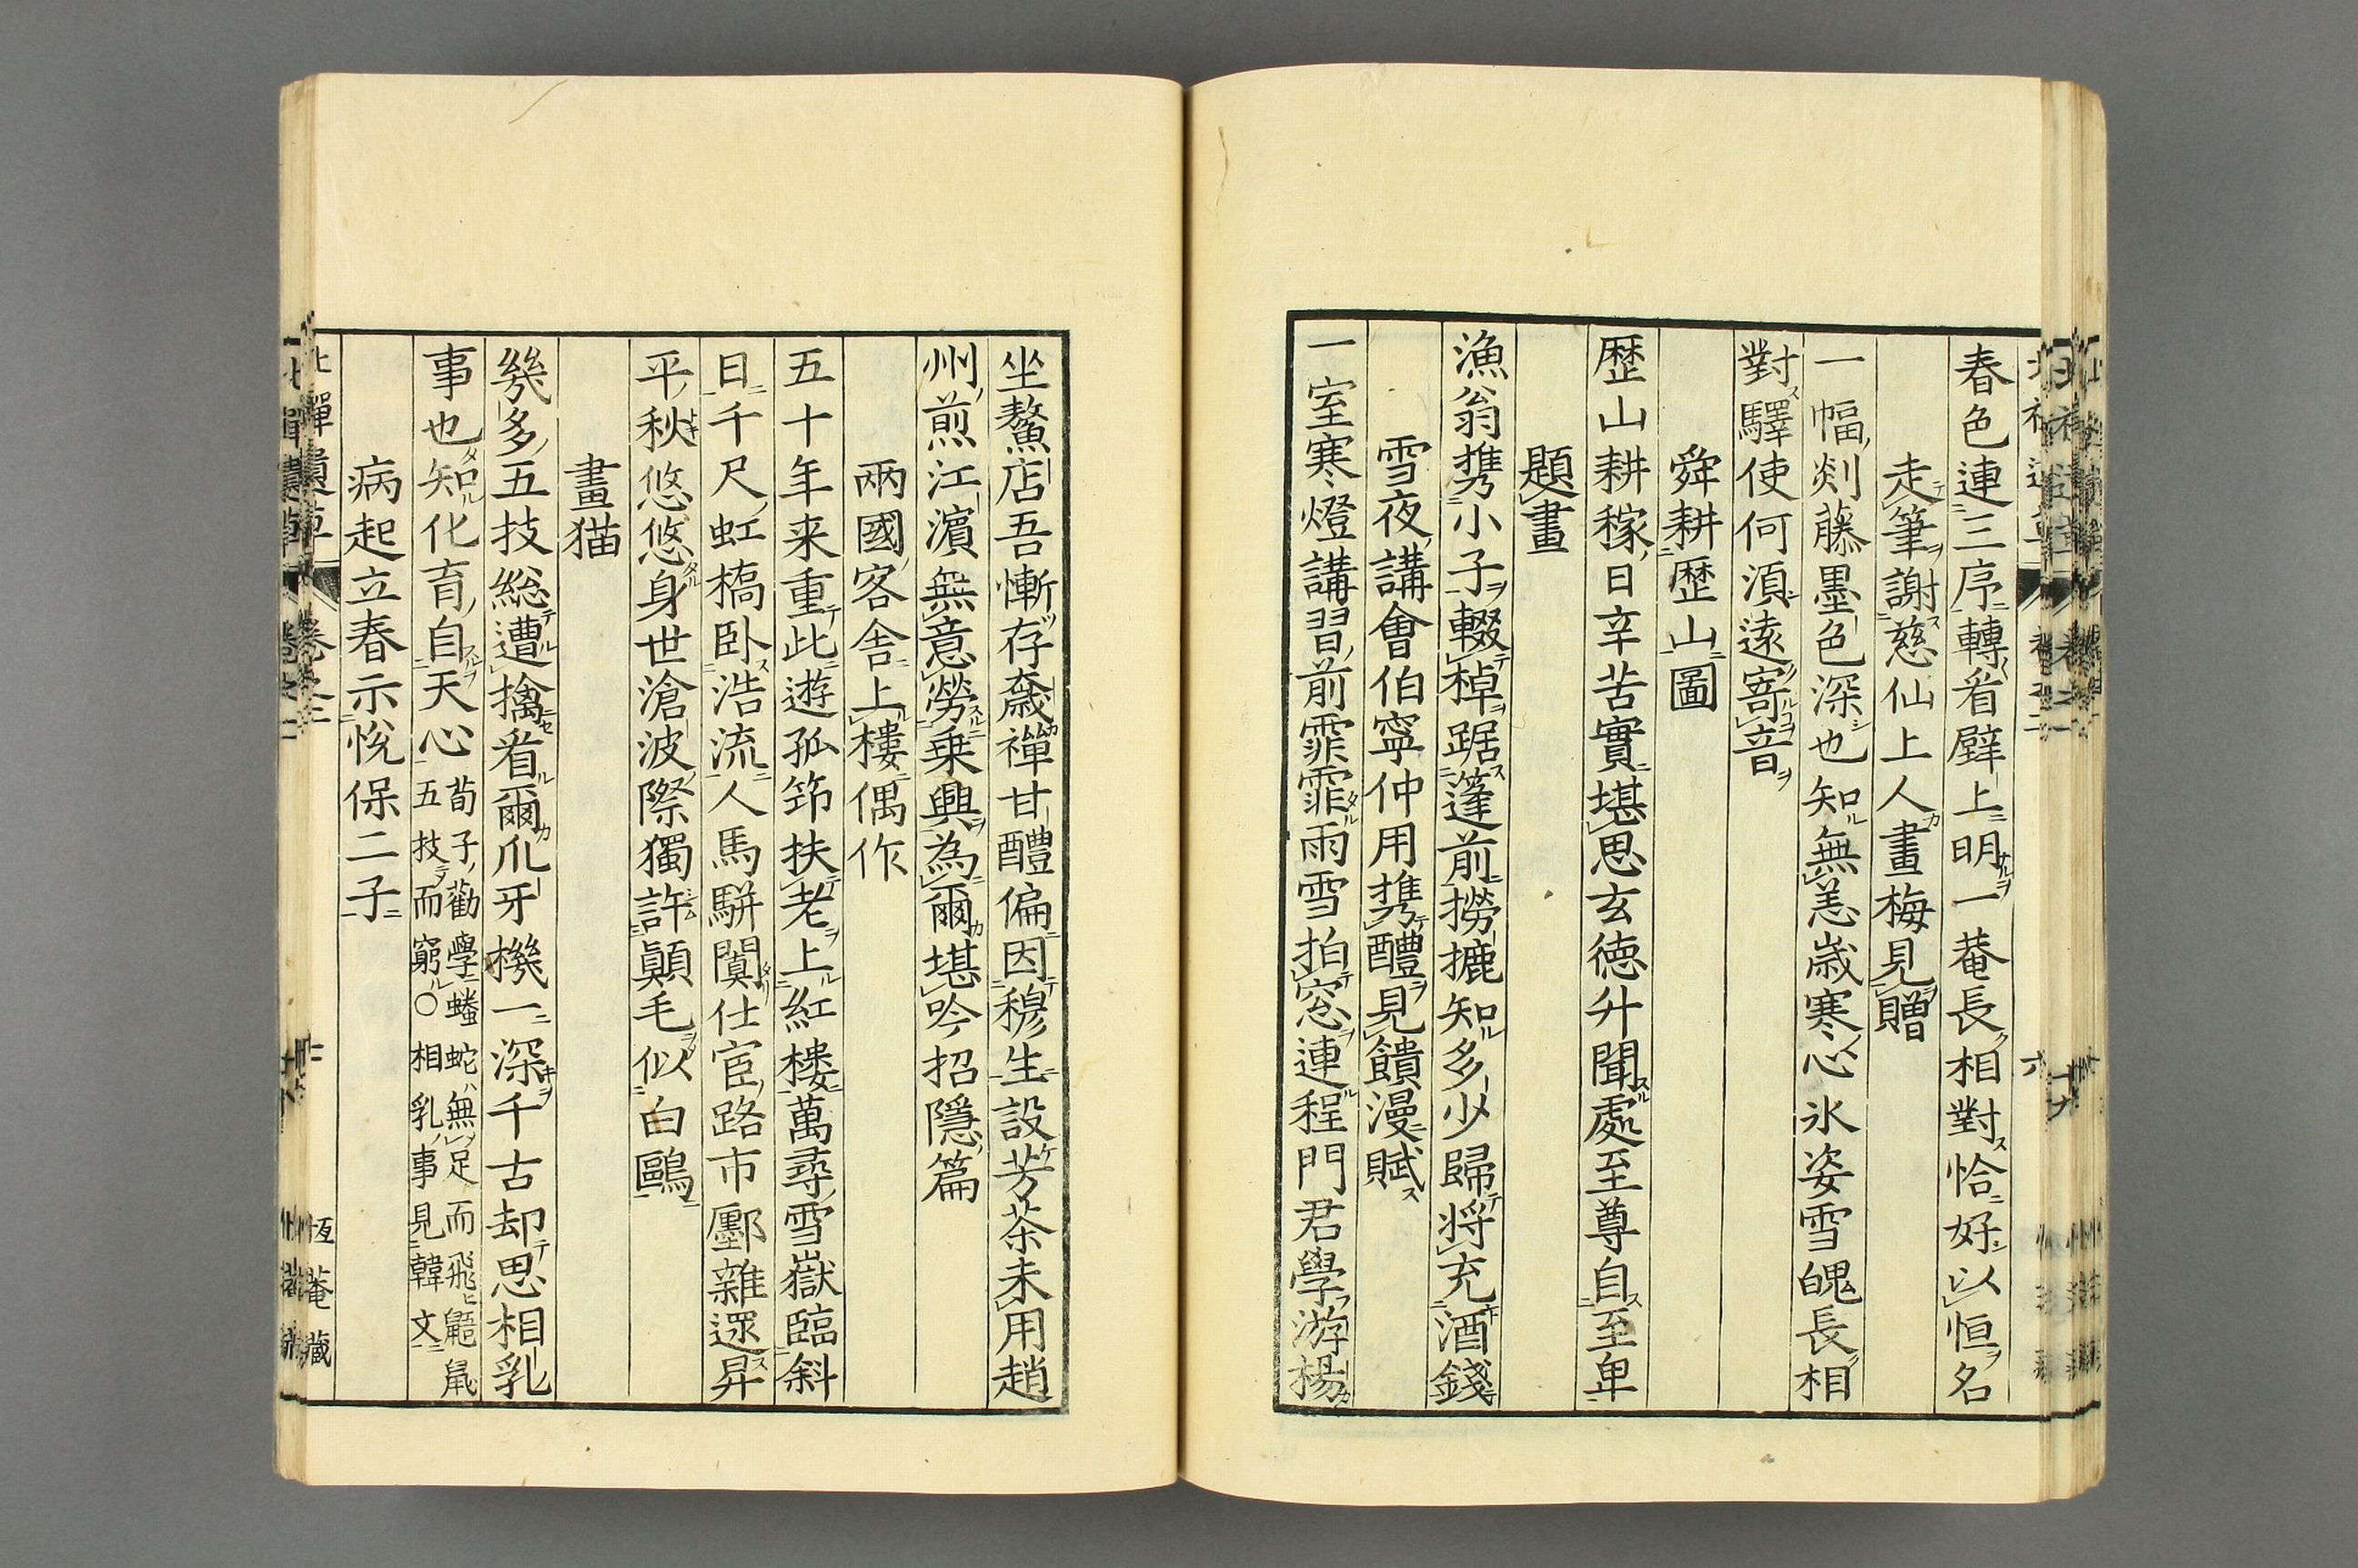 春色連三序轉看壁上明一菴長相對恰好以恒名
走筆謝慈仙上人畫梅見贈
一幅剡藤墨色深也知無恙歳寒心氷姿雪魄長相
對驛使何須遠寄音
舜耕歴山圖
歴山耕稼日辛苦實堪思玄徳升聞處至尊自至卑
題畫
漁翁携小子輟棹踞篷前撈摝知多少歸将充酒錢
雪夜講會伯寧仲用携醴見饋漫賦
一室寒燈講習前霏霏雨雪拍窓連程門君學游楊
坐鰲店吾慚存齋禅甘醴偏因穆生設芳茶未用趙
州煎江濵無意勞乗興為爾堪吟招隱篇
兩國客舎上樓偶作
五十年来重此遊孤筇扶老上紅樓萬尋雪嶽臨斜
日千尺虹橋卧浩流人馬駢闐仕宦路市鄽雜遝昇
平秋悠悠身世滄波際獨許顛毛似白鷗
畫猫
幾多五技総遭擒看爾爪牙機一深千古却思相乳
事也知化育自天心 荀子勸學螣蛇無足而飛鼯鼠五技而窮〇相乳事見韓文
病起立春示悅保二子
恆菴藏